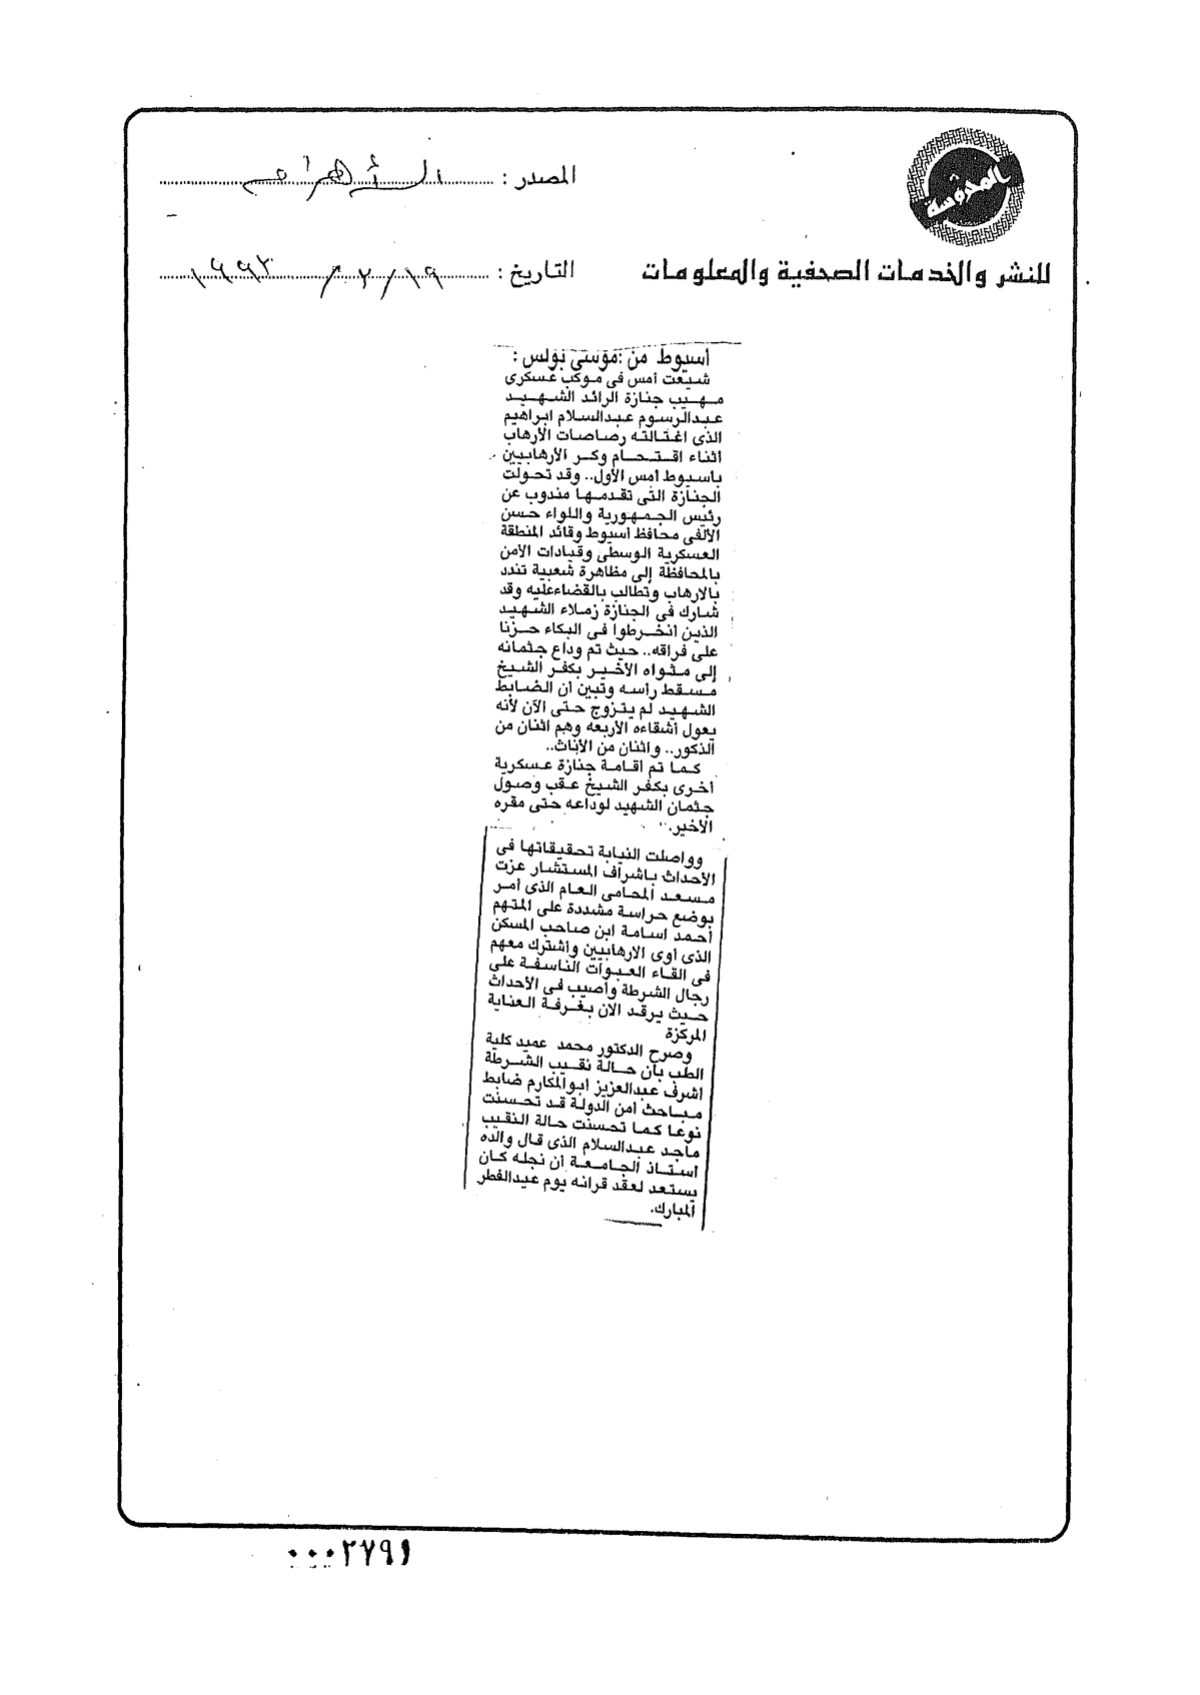 المحروسة
للنشر والخدمات الصحفية والمعلومات
المصدر : الأهرام
التاريخ : ١٩ / ٢ / ١٩٩٣
أسيوط من : موسى بولس :
شيعت أمس فى موكب عسكرى
مهيب جنازة الرائد الشهيد
عبدالرسوم عبدالسلام ابراهيم
الذى اغتالته رصاصات الأرهاب
اثناء اقتحام وكر الأرهابيين
باسيوط امس الأول.. وقد تحولت
الجنازة التى تقدمها مندوب عن
رئيس الجمهورية واللواء حسن
الألفى محافظ أسيوط وقائد المنطقة
العسكرية الوسطى وقيادات الأمن
بالمحافظة إلى مظاهرة شعبية تندد
بالارهاب وتطالب بالقضاءعليه وقد
شارك فى الجنازة زملاء الشهيد
الذين انخرطوا فى البكاء حزنا
على فراقه.. حيث تم وداع جثمانه
إلى مثواه الأخير بكفر الشيخ
مسقط رأسه وتبين أن الضابط
الشهيد لم يتزوج حتى الآن لأنه
يعول أشقاءه الأربعه وهم اثنان من
الذكور.. واثنان من الأناث..
كما تم اقامة جنازة عسكرية
أخرى بكفر الشيخ عقب وصول
جثمان الشهيد لوداعه حتى مقره
الأخير.
وواصلت النيابة تحقيقاتها فى
الأحداث باشراف المستشار عزت
مسعد المحامى العام الذى أمر
بوضع حراسة مشددة على المتهم
أحمد اسامة ابن صاحب المسكن
الذى اوى الارهابيين واشترك معهم
فى القاء العبوات الناسفة على
رجال الشرطة وأصيب فى الأحداث
حيث يرقد الان بغرفة العناية
المركزة
وصرح الدكتور محمد عميد كلية
الطب بأن حالة نقيب الشرطة
أشرف عبدالعزيز ابوالمكارم ضابط
مباحث امن الدولة قد تحسنت
نوعا كما تحسنت حالة النقيب
ماجد عبدالسلام الذى قال والده
أستاذ الجامعة أن نجله كان
يستعد لعقد قرانه يوم عيدالفطر
المبارك.
٠٠٠٢٧٩١